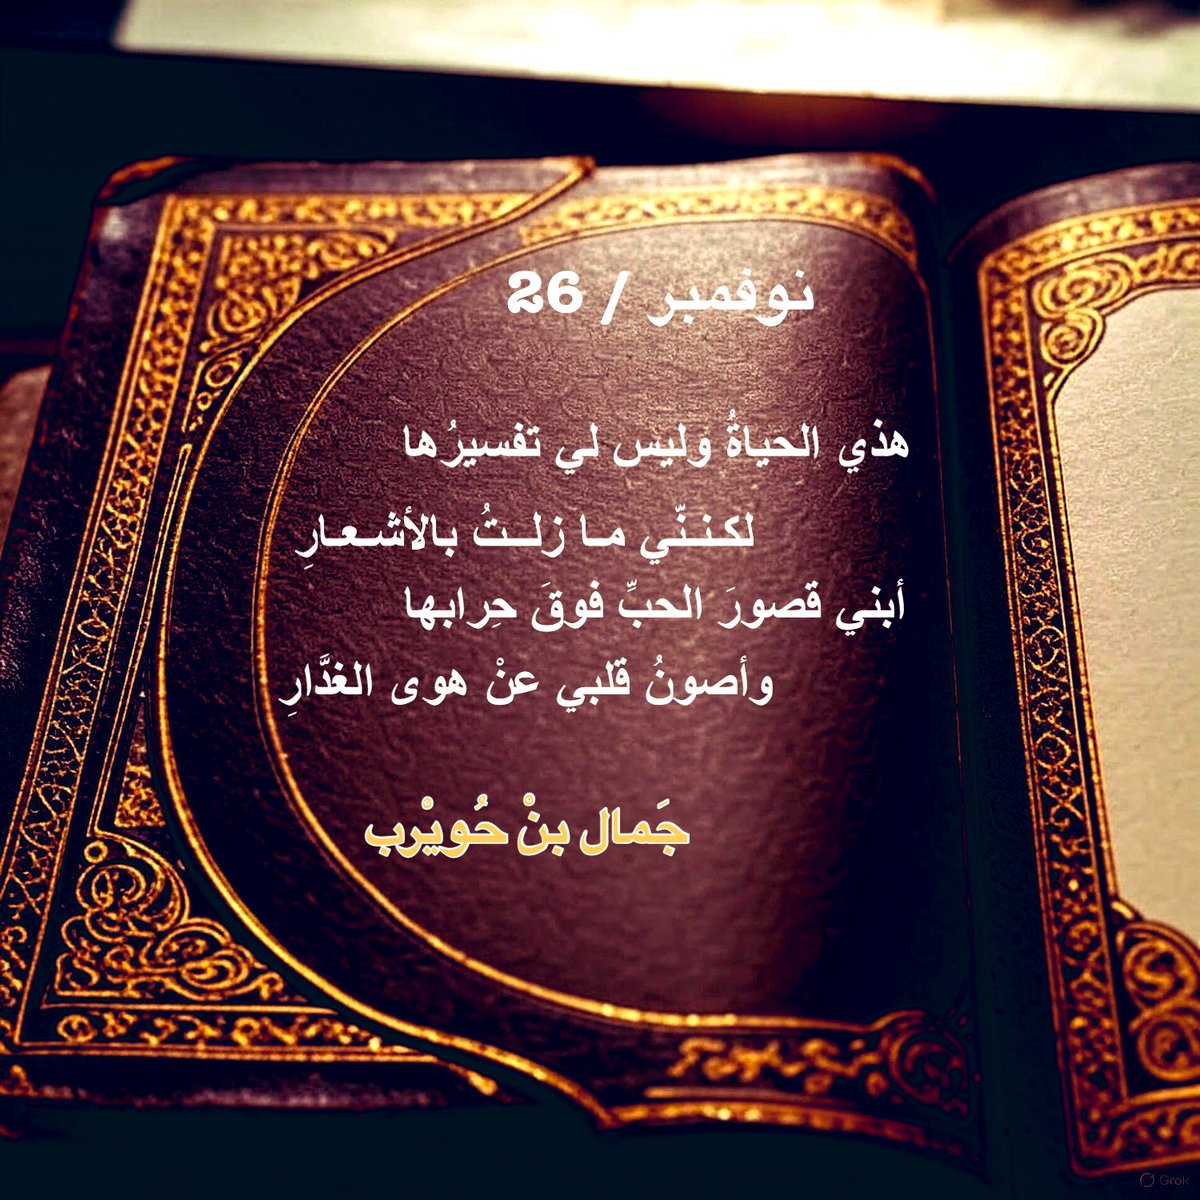 نوفمبر / 26
هذي الحياةُ وليس لي تفسيرُها
لكننّي ما زلتُ بالأشعارِ
أبني قصورَ الحبِّ فوقَ حِرابها
وأصونُ قلبي عنْ هوى الغدَّارِ
جَمال بنْ حُويْرب
Grok